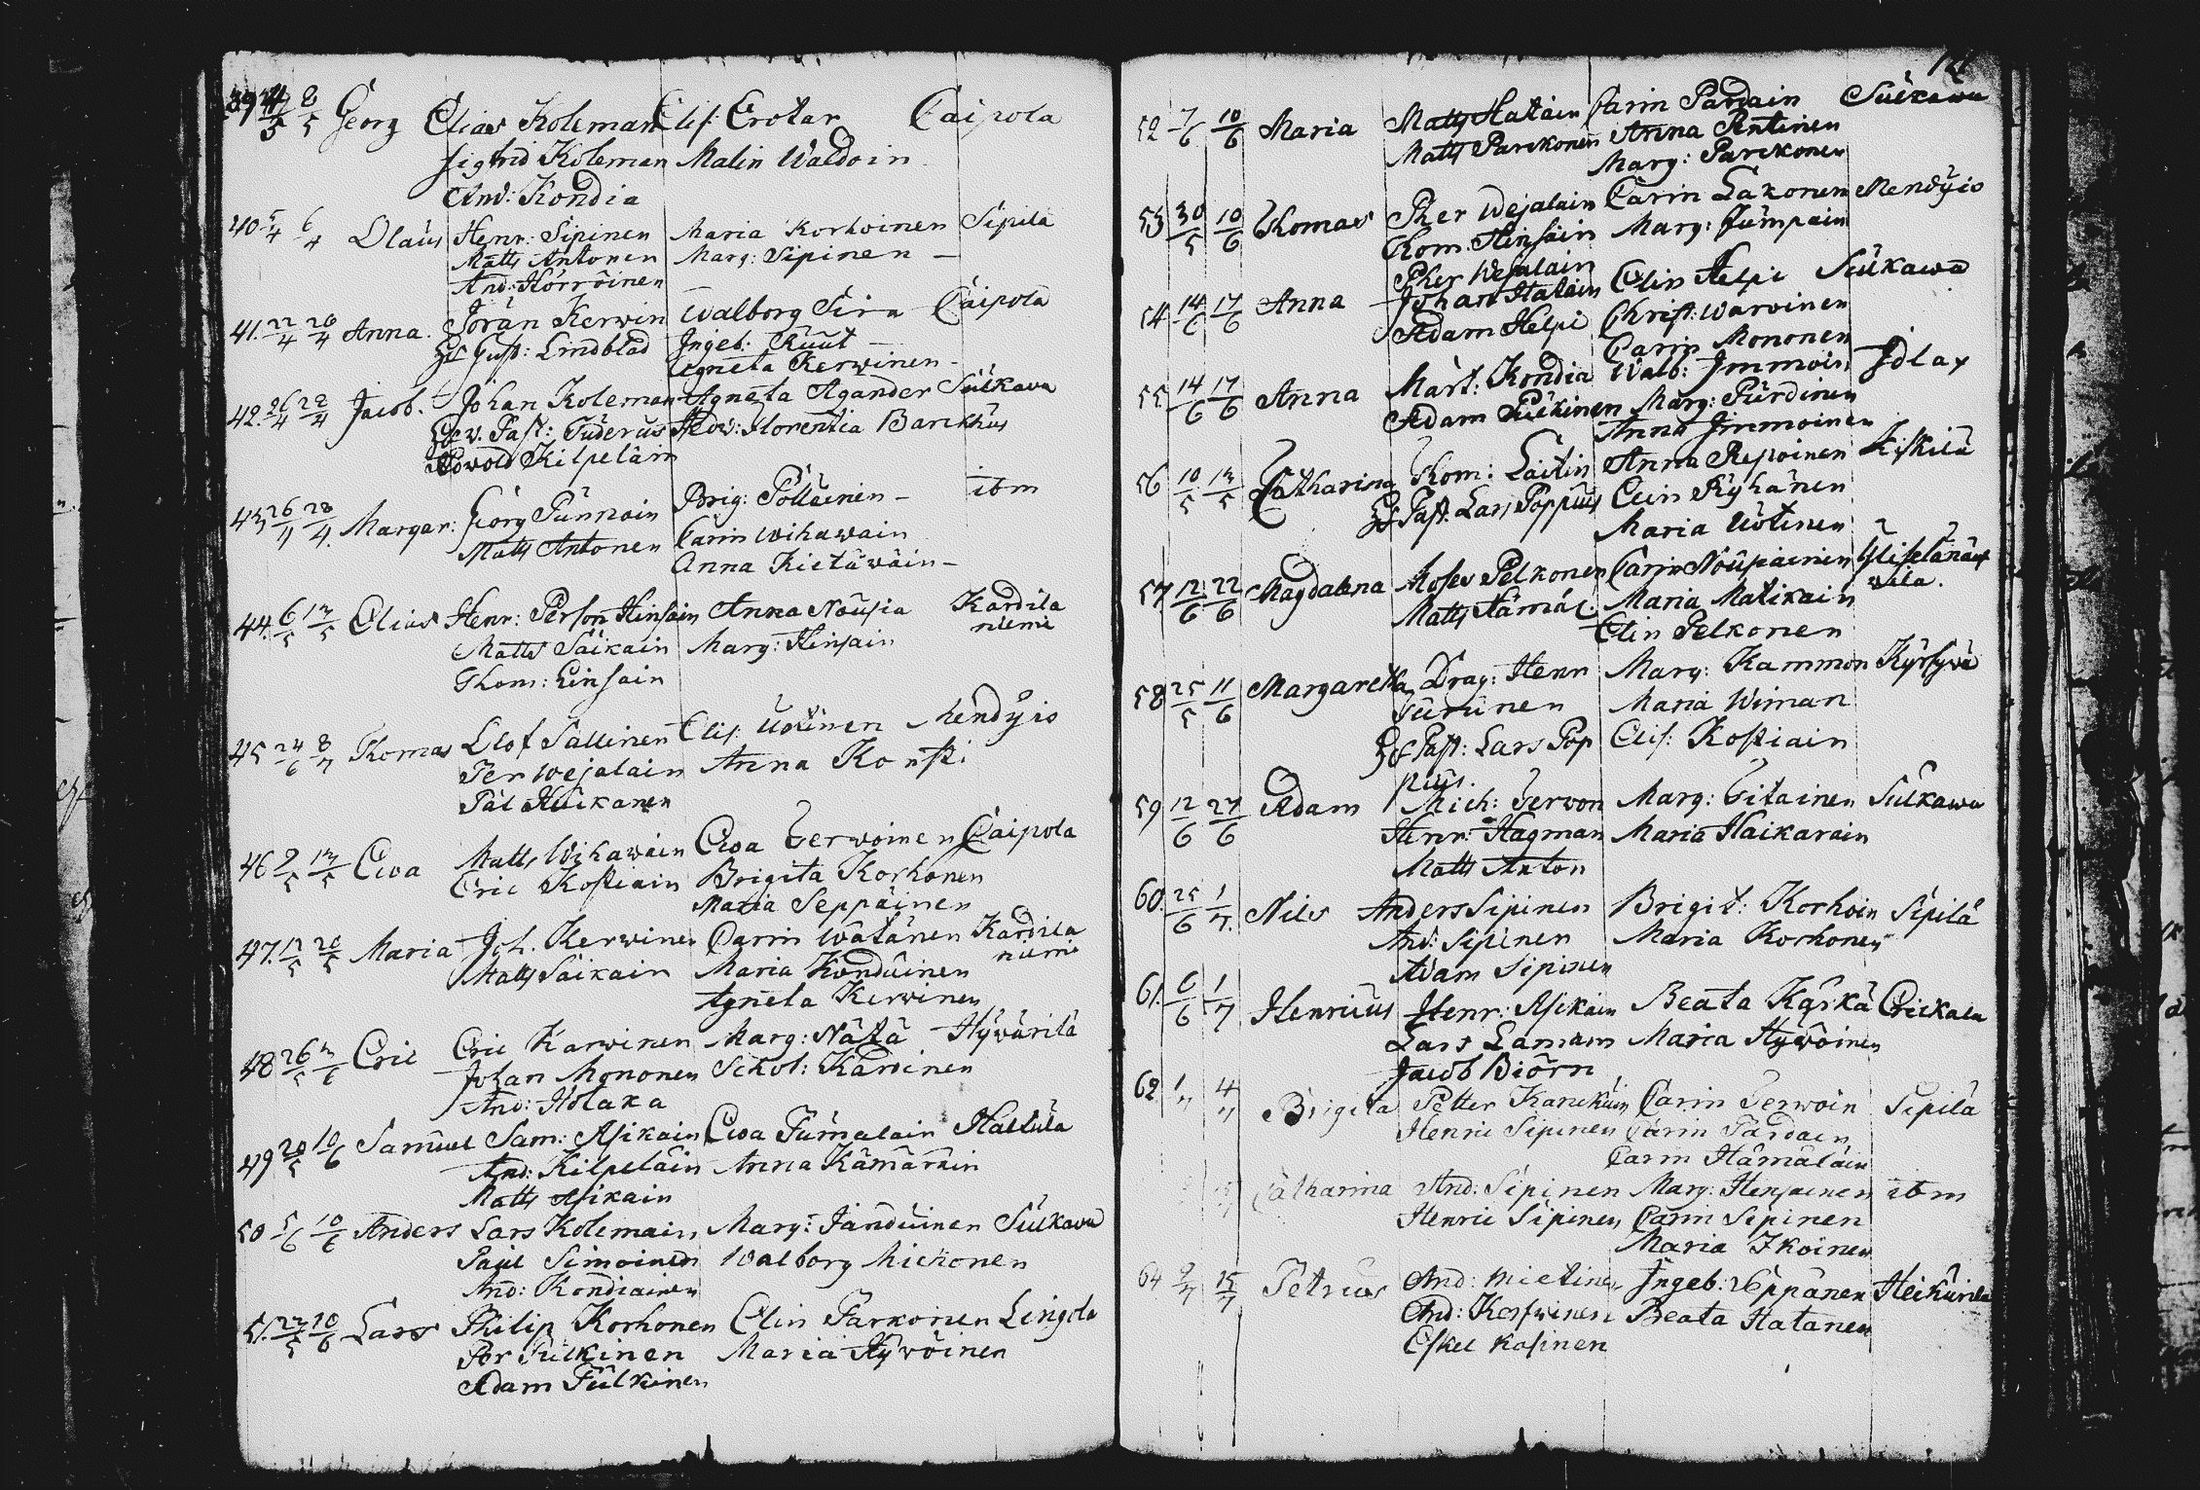 39 4/5 8/5 Georg Elias Koleman Elis: Erotar Caipola
Sigfrid Koleman Malin Waldoin
And: Kondia
40 5/4 6/4 Olaus Henr: Sipinen Maria Korhoinen Sipilä
Matts Antonen Marg: Sipinen –
And: Horröinen –
41. 22/4 26/4 Anna. Jöran Kerwin Walborg Sira Caipola
Gust: Lindblad Ingeb: Ruut –
Agneta Kerwinen –
42. 26/4 28/4 Jacob. Johan Koleman Agneta Agander Sulkava
v. Past: Tuderus Hedv: Florentia Barckhus
Kilpeläin
43 26/4 28/4. Margar: Georg Punnoin Brig: Pölläinen – ibm
Matts Antonen Carin Wihawain
Anna Kietäwäin –
44. 6/5 13/5 Elias Henr: Person Hinsain Anna Nousia Kardila
Matts Säikain Marg: Hinsain niemi
Thom: Linsain
45 24/6 8/7 Thomas Olof Sallinen Elis: Uotinen Mendyis
Per Wejalain Anna Konsti
Pål Huikanen
46 2/5 13/5 Ewa Matts Wihawain Ewa Terwoinen Caipola
Eric Kostiain Brigita Korhonen
Maria Seppäinen
47. 12/5 20/5 Maria Joh. Kerwinen Carin Watanen Kardila
Matts Säikain Maria Konduinen niemi
Agneta Kerwinen
48 26/5 3/6 Eric Eric Karwinen Marg: Nätä Hywärilä
Johan Mononen Schol: Karvinen
And: Holaka
49 20/5 10/6 Samuel Sam: Asikain Ewa Tumalain Halttula
And: Kilpeläin Anna Kämäräin
Matts Asikain
50 5/6 10/6 Anders Lars Kolemain Marg: Janduinen Sulkava
Paul Simoinen Walborg Mickonen
And: Kondiainen
51. 27/5 10/6 Lars Philip Korhonen Elin Parkoinen Lingola
Per Pulkinen Maria Hywöinen
Adam Pulkinen
52 7/6 10/6 Maria Matts Hatain Carin Pardain Sulkawa
Matts Parckonen Anna Antinen
Marg: Parckonen
53 30/5 10/6 Thomas Pher Wejalain Carin Lakonen Mendyis
Thom: Hinsain Marg: Jumpain
Pher Wejalain
54 14/6 17/6 Anna Johan Hatain Elin Helpi Sulkawa
Adam Helpi Christ: Warvinen
Carin Mononen
55 14/6 17/6 Anna Mårt: Kondia Walb: Immoin Idlax
Adam Puckinen Marg: Purdinen
Anna Immoinen
56 10/5 13/5 Catharina Thom: Laitin Anna Repoinen Kiskilä
Past: Lars Poppius Elin Ryhänen
Maria Uotinen
57 12/6 22/6 Magdalena Moses Pelkonen Carin Noupiainen
Matts Hämäl: Maria Matikain
Elin Pelkonen
58 25/5 11/6 Margaretha Drag: Henr Marg: Kammon Kyrsyvä
Turunen Maria Wiman
Past: Lars Pop Elis: Kostiain
pius.
59 12/6 27/6 Adam Mich: Terwon Marg: Titainen Sulkawa
Henr: Hagman Maria Haikarain
Matts Anton
60. 25/6 1/7. Nils Anders Sipinen Brigit: Korhoin Sipilä
And: Sipinen Maria Korhonen
Adam Sipinen
61. 6/6 1/7 Henricus Henr: Asikain Beata Kärkä Erickala
Lars Laman Maria Hywöinen
Jacob Biörn
62 1/7 4/7 Brigita Petter Karckuin Carin Terwoin Sipilä
Henric Sipinen Carin Pardain
Carin Hämäläin
Catharina And: Sipinen Marg: Hensainen ibm
Henric Sipinen Carin Sipinen
Maria Ikoinen
64 9/7 15/7 Petrus And: Mietinen Ingeb: Heikurila
And: Beata Hatanen
Eskel Kasinen